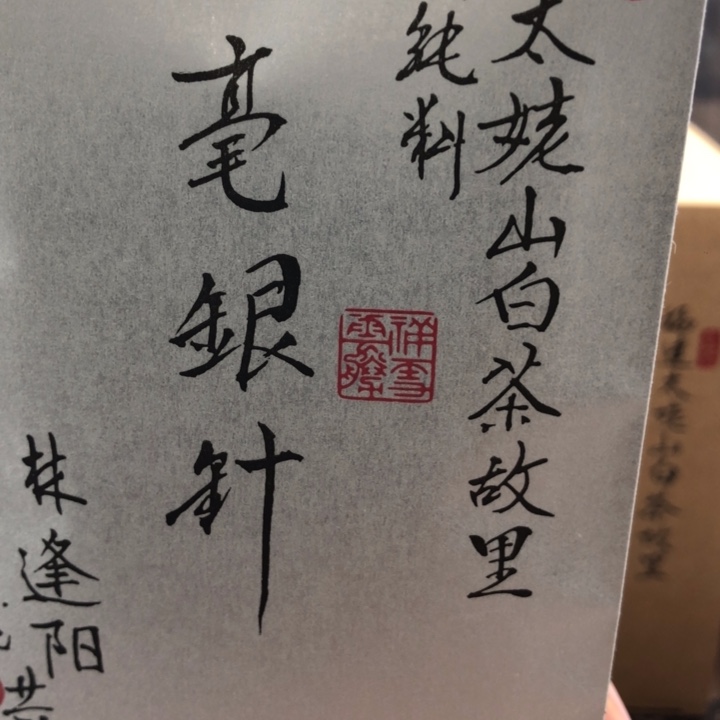 太姥山白茶故里
純料
毫銀針
林逢阳
福建太姥山白茶故里